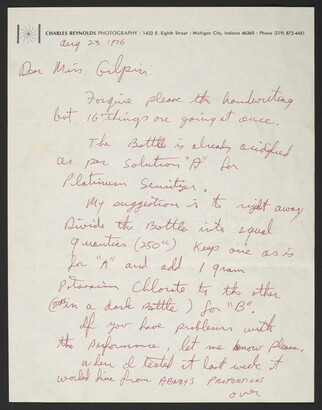 CHARLES REYNOLDS PHOTOGRAPHY · 1422 E. Eighth Street · Michigan City, Indiana 46360 · Phone (219) 872-4461
Aug 23 1976
Dear Miss Gilpin:
Forgive please the handwriting
but 16 things are going at once.
The Bottle is already acidified
as per Solution "A" for
Platinum Sensitizer.
My suggestion is to right away
Divide the Bottle into equal
quantities (250cc) Keep one as is
for "A" and add 1 gram
Potassium Chlorate to the other
in a dark Bottle) for "B".
If you have problems with
the Performance, let me know please,
when I tested it last week it
worked fine from ABNEYS PROPORTIONS
over